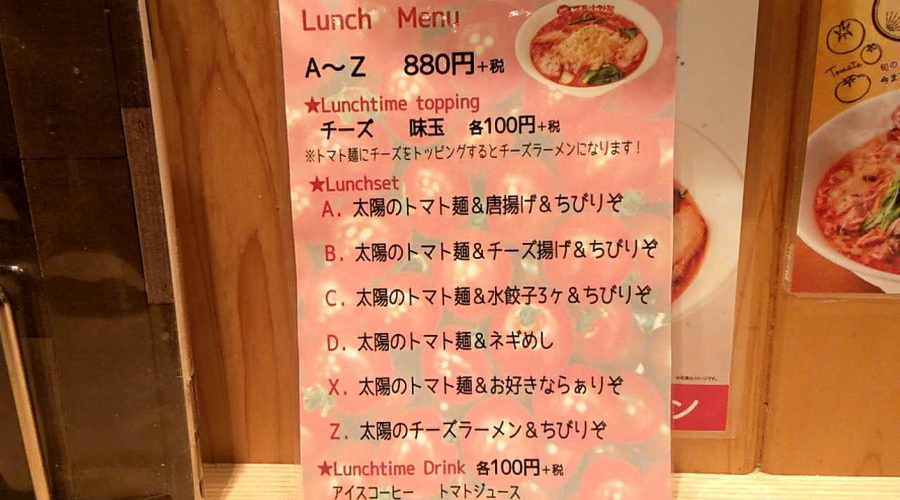 Lunch Menu
A～Z 880円+税
★Lunchtime topping
チーズ 味玉 各100円+税
※トマト麺にチーズをトッピングするとチーズラーメンになります！
★Lunchset
A. 太陽のトマト麺＆唐揚げ＆ちびりぞ
B. 太陽のトマト麺＆チーズ揚げ＆ちびりぞ
C. 太陽のトマト麺＆水餃子3ヶ＆ちびりぞ
D. 太陽のトマト麺＆ネギめし
X. 太陽のトマト麺＆お好きならぁりぞ
Z. 太陽のチーズラーメン＆ちびりぞ
★Lunchtime Drink 各100円+税
アイスコーヒー トマトジュース
ン
Tomato
旬の